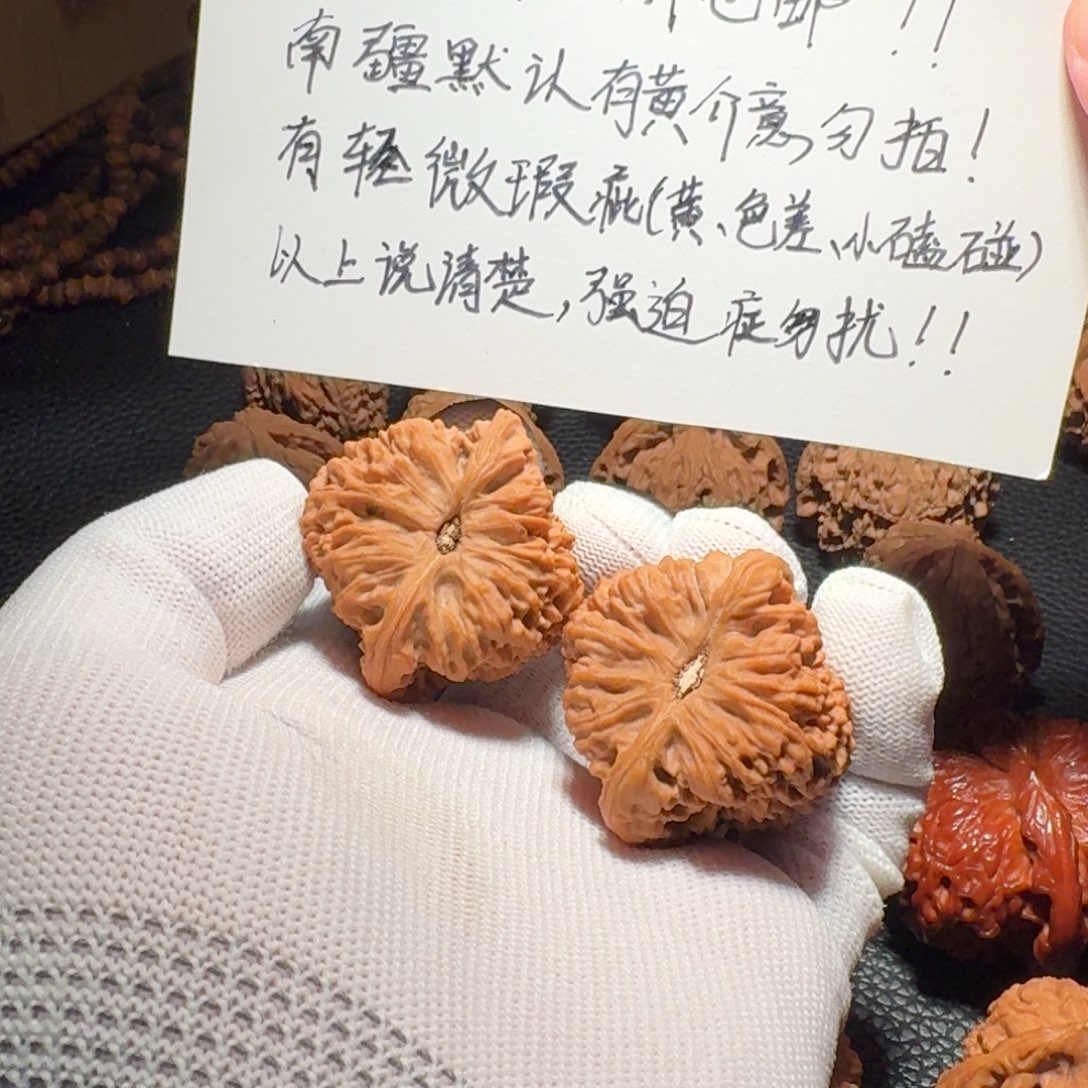 包邮!!
南疆默认有黄介意勿拍!
有轻微瑕疵(黄、色差、小磕碰)
以上说清楚,强迫症勿扰!!